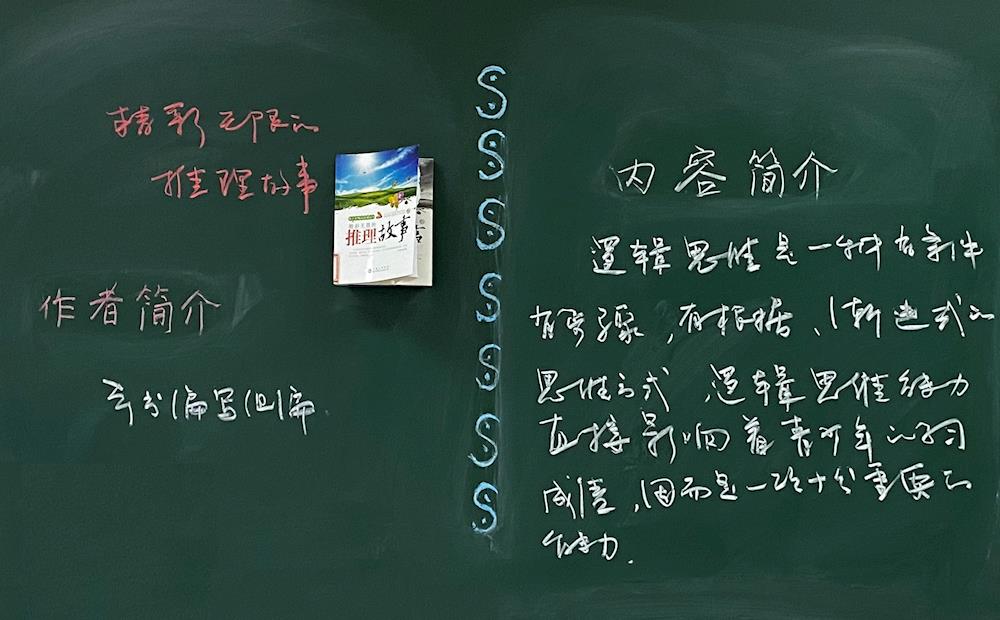 精彩无限的
推理故事
推理故事
作者简介
本书编写组编.
内容简介
逻辑思维是一种有条件
有步骤,有根据、渐进式的
思维方式 逻辑思维能力
直接影响着青少年的学习
成绩,因而是一项十分重要的
能力.